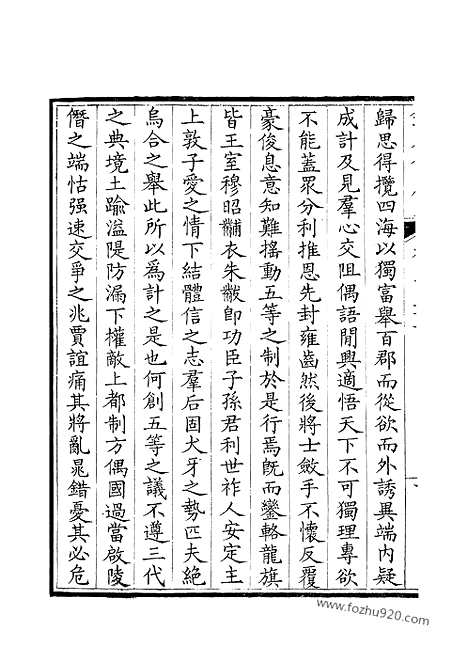 歸思得攬四海以獨富舉百郡而從欲而外誘異端内疑
成計及見羣心交阻偶語閒興適悟天下不可獨理專欲
不能蓋眾分利推恩先封雍齒然後將士斂手不懷反覆
豪俊息意知難摇動五等之制於是行焉旣而鑾輅龍旗
皆王室穆昭黼衣朱黻卽功臣子孫君利世祚人安定主
上敦子愛之情下結體信之志羣后固犬牙之勢匹夫絶
烏合之舉此所以為計之是也何創五等之議不遵三代
之典境土踰溢隄防漏下權敵上都制方偶國過當啟陵
僭之端怙强速交爭之兆賈誼痛其將亂鼂錯憂其必危
www.fozhu920.com